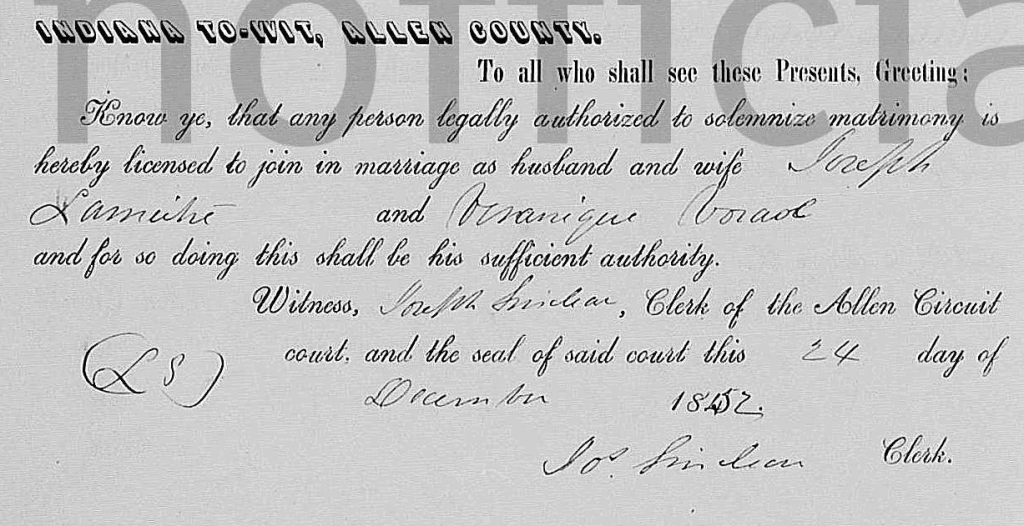 nofficia
INDIANA TO-WIT, ALLEN COUNTY.
To all who shall see these Presents, Greeting:
Know ye, that any person legally authorized to solemnize matrimony is
hereby licensed to join in marriage as husband and wife Joseph
and Veranique
and for so doing this shall be his sufficient authority.
Witness, Joseph Sinclear, Clerk of the Allen Circuit
(L S) court, and the seal of said court this 24 day of
December 1852.
Jos. Sinclear Clerk.